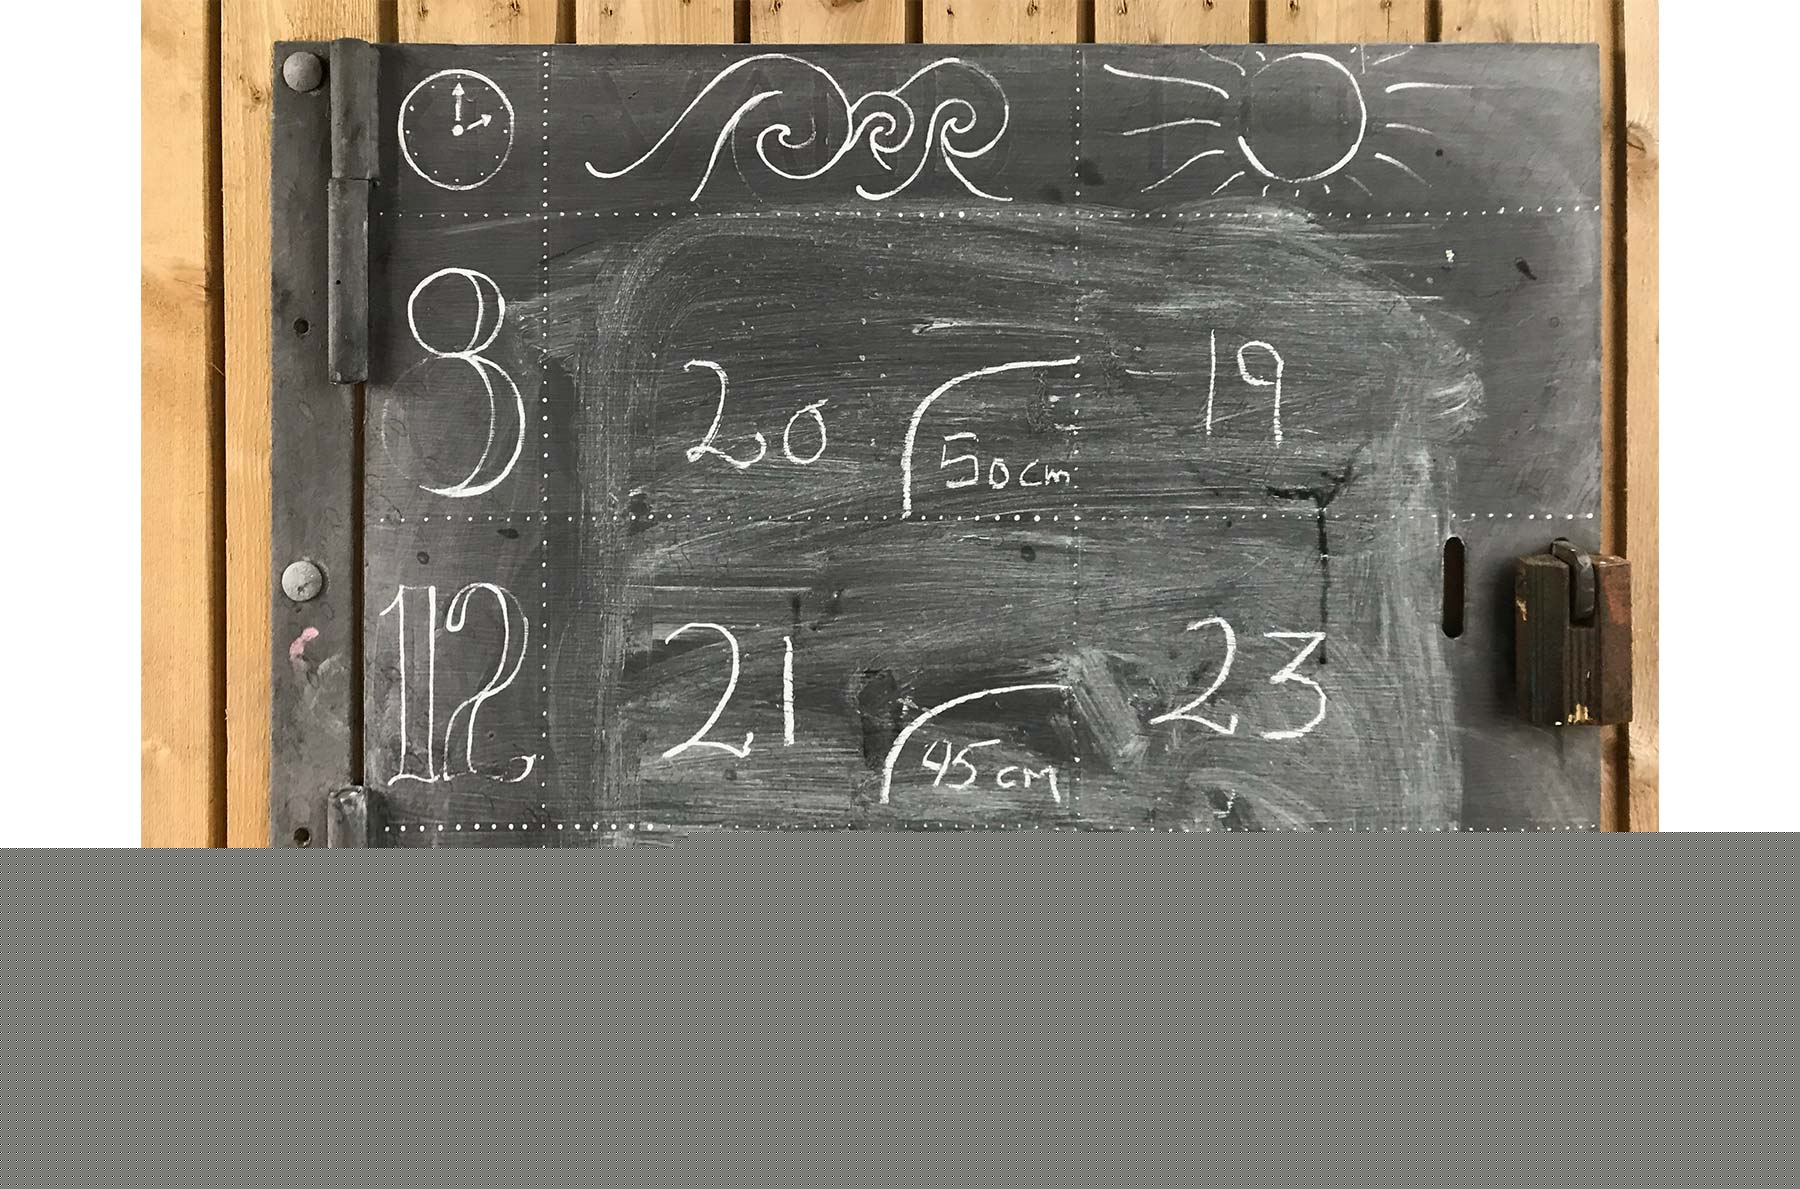 8 20 50cm 19
12 21 45cm 23